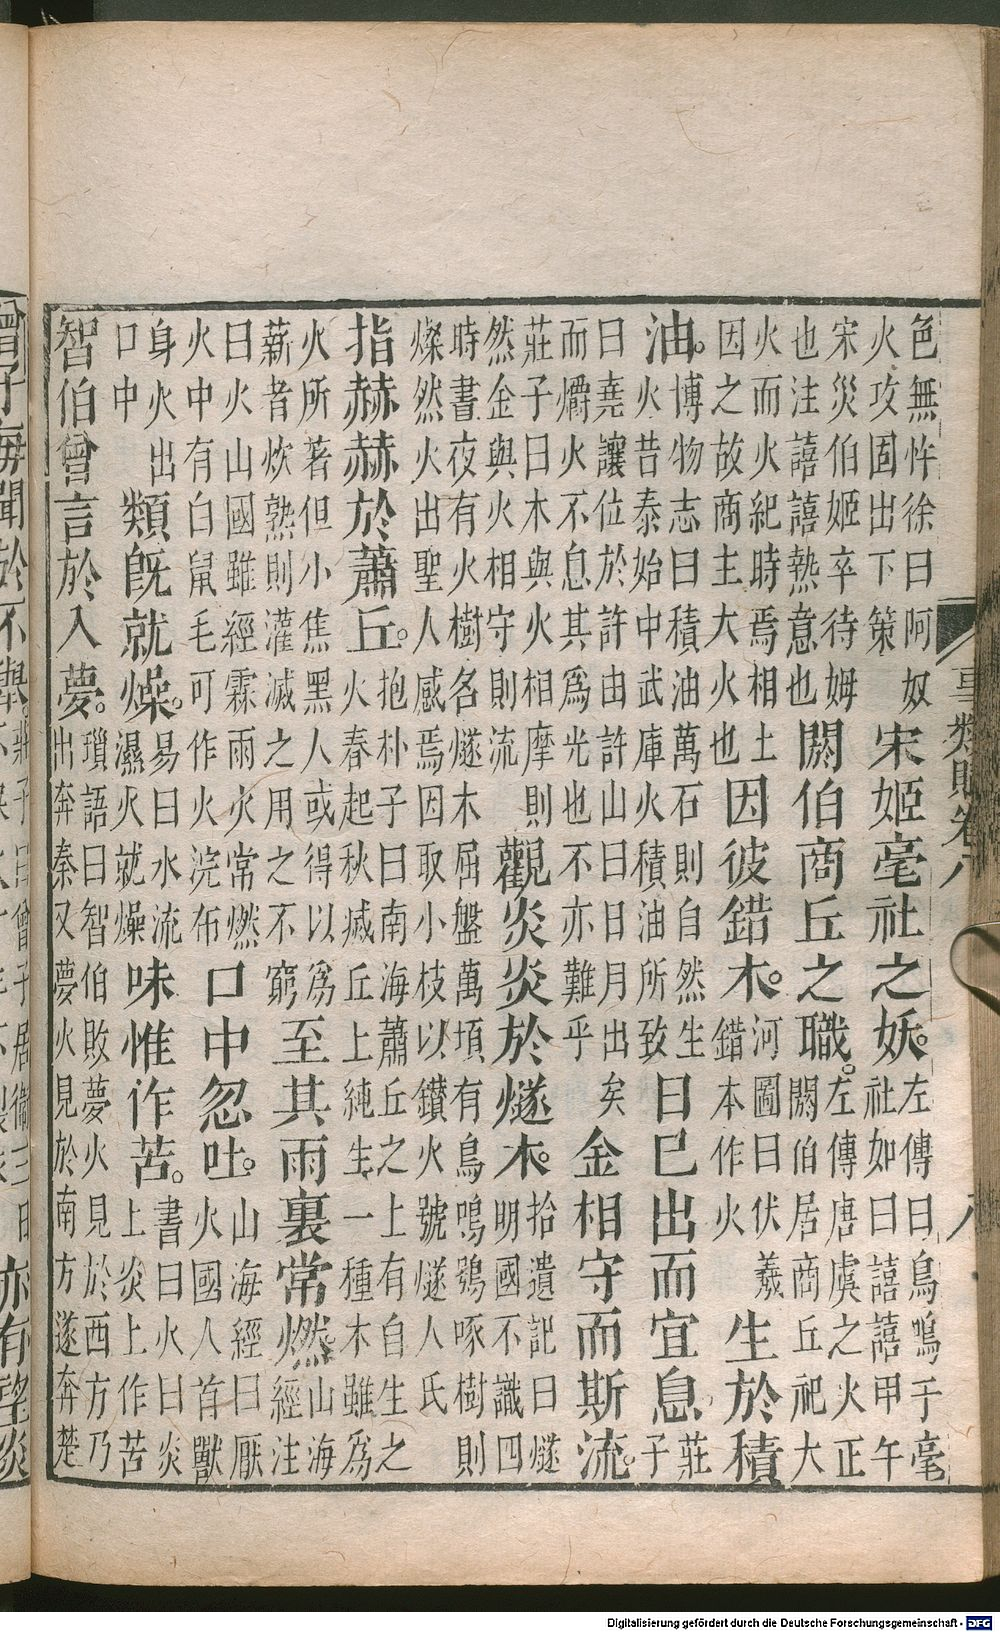 色無忤徐曰阿奴
火攻固出下策
宋姬毫社之妖。
左傳曰鳥鳴于毫
社如曰譆譆甲午
宋災伯姬卒待姆
也注譆譆熱意也
閼伯商丘之職。
左傳唐虞之火正
閼伯居商丘祀大
火而火紀時焉相土
因之故商主大火也
因彼錯木。
河圖曰伏羲
錯本作火
生於積
油。
博物志曰積油萬石則自然生
火昔泰始中武庫火積油所致
日巳出而宜息
莊
子
曰堯讓位於許由許山曰日月出矣
而爝火不息其爲光也不亦難乎
金相守而斯流。
莊子曰木與火相摩則
然金與火相守則流
觀炎炎於燧木。
拾遺記曰燧
明國不識四
時晝夜有火樹名燧木屈盤萬頃有鳥鳴鴞啄樹則
燦然火出聖人感焉因取小枝以鑽火號燧人氏
指赫赫於蕭丘。
抱朴子曰南海蕭丘之上有自生之
火春起秋滅丘上純生一種木雖爲
火所著但小焦黑人或得以爲
薪者炊熟則灌滅之用之不窮
至其雨裏常燃
山海
經注
曰火山國雖經霖雨火常燃
火中有白鼠毛可作火浣布
口中忽吐。
山海經曰厭
火國人首獸
身火出
口中
類旣就燥。
易曰水流
濕火就燥
味惟作苦。
書曰火曰炎
上炎上作苦
智伯曾言於入夢。
瑣語曰智伯敗夢火見於西方乃
出奔秦又夢火見於南方遂奔楚
Digitalisierung gefördert durch die Deutsche Forschungsgemeinschaft - DFG